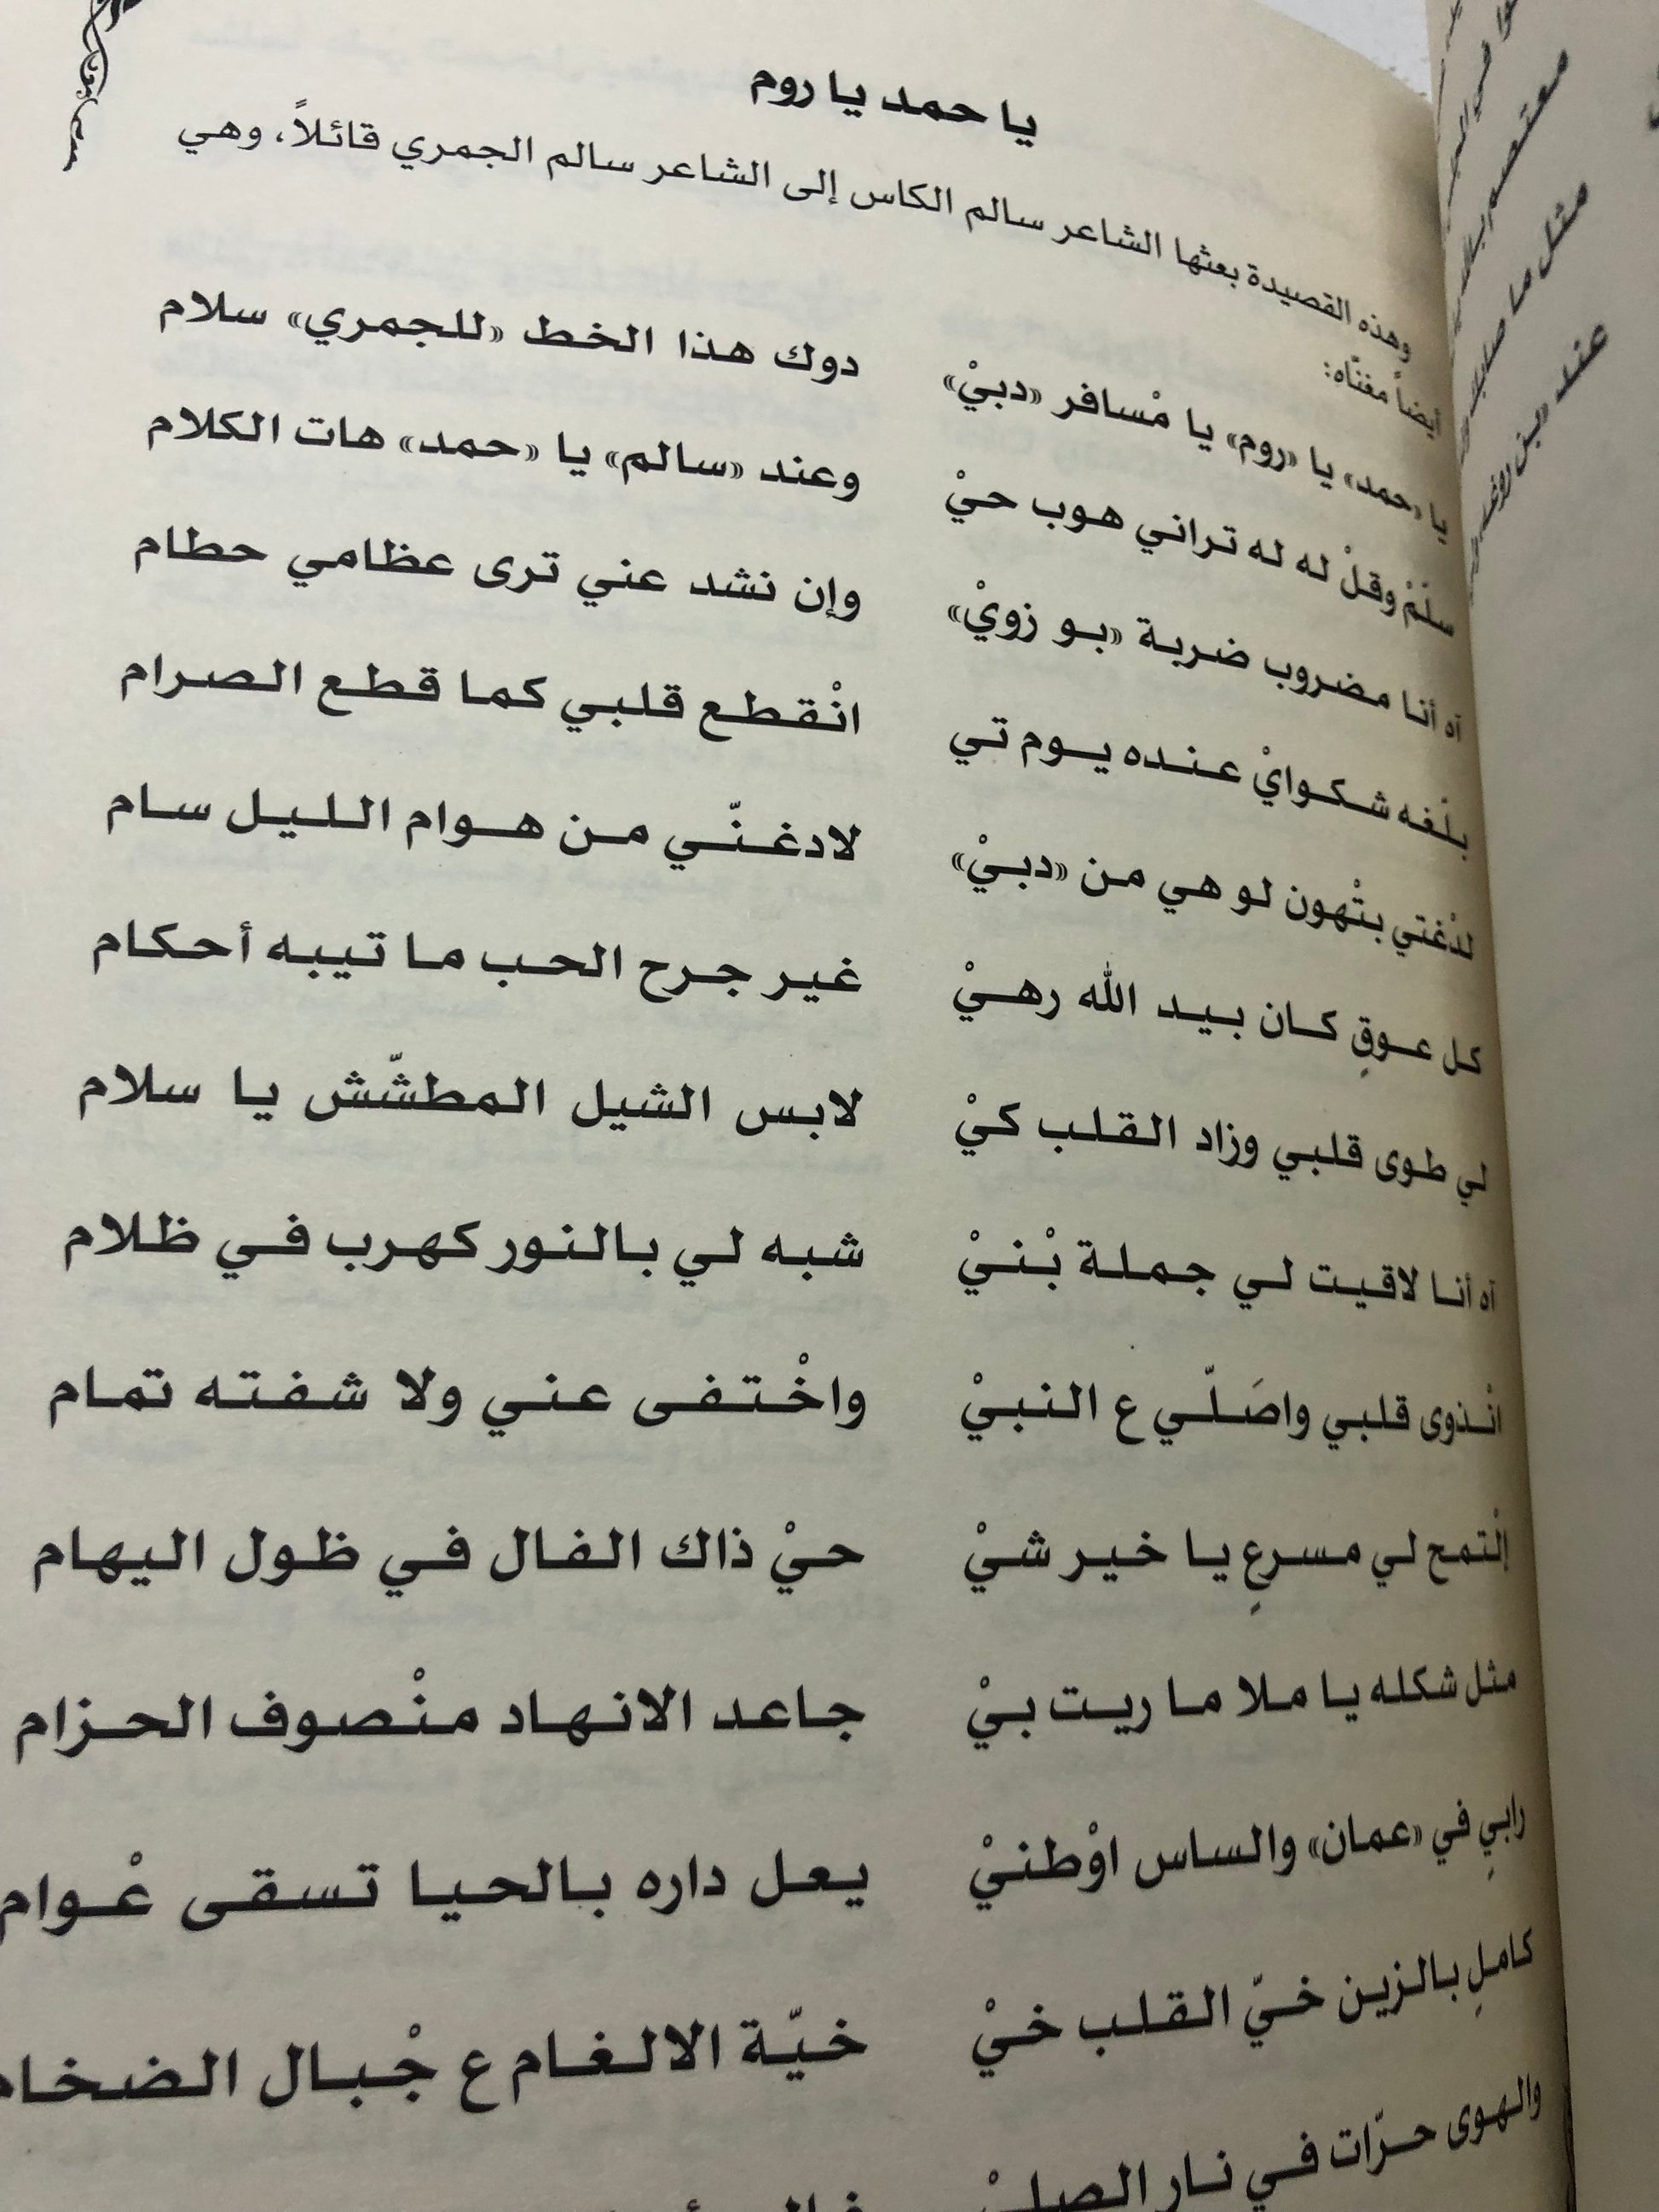 يا حمد يا روم
وهذه القصيدة بعثها الشاعر سالم الكاس إلى الشاعر سالم الجمري قائلاً، وهي
أيضاً مغنّاه:
يا «حمد» يا «روم» يا مْسافر «دبيْ» دوك هذا الخط «للجمري» سلام
سلّمْ وقلْ له له تراني هوب حيْ وعند «سالم» يا «حمد» هات الكلام
آه أنا مضروب ضربة «بو زويْ» وإن نشد عني ترى عظامي حطام
بلّغه شكوايْ عنده يوم تي انْقطع قلبي كما قطع الصرام
لدْغتي بتْهون لو هي من «دبيْ» لادغنّي من هوام الليل سام
كل عوقٍ كان بيد الله رهيْ غير جرح الحب ما تيبه أحكام
لي طوى قلبي وزاد القلب كيْ لابس الشيل المطشّش يا سلام
آه أنا لاقيت لي جملة بْنيْ شبه لي بالنور كهرب في ظلام
انْذوى قلبي واصَلّي ع النبيْ واخْتفى عني ولا شفته تمام
إلْتمح لي مسرعٍ يا خير شيْ حيْ ذاك الفال في ظول اليهام
مثل شكله يا ملا ما ريت بيْ جاعد الانهاد منْصوف الحزام
رابيٍ في «عمان» والساس اوْطنيْ يعل داره بالحيا تسقى عْوام
كاملٍ بالزين خيّ القلب خيْ خيّة الالغام ع جْبال الضخام
والهوى حرّات في نار
معتصم
مثل ما
عند «بن